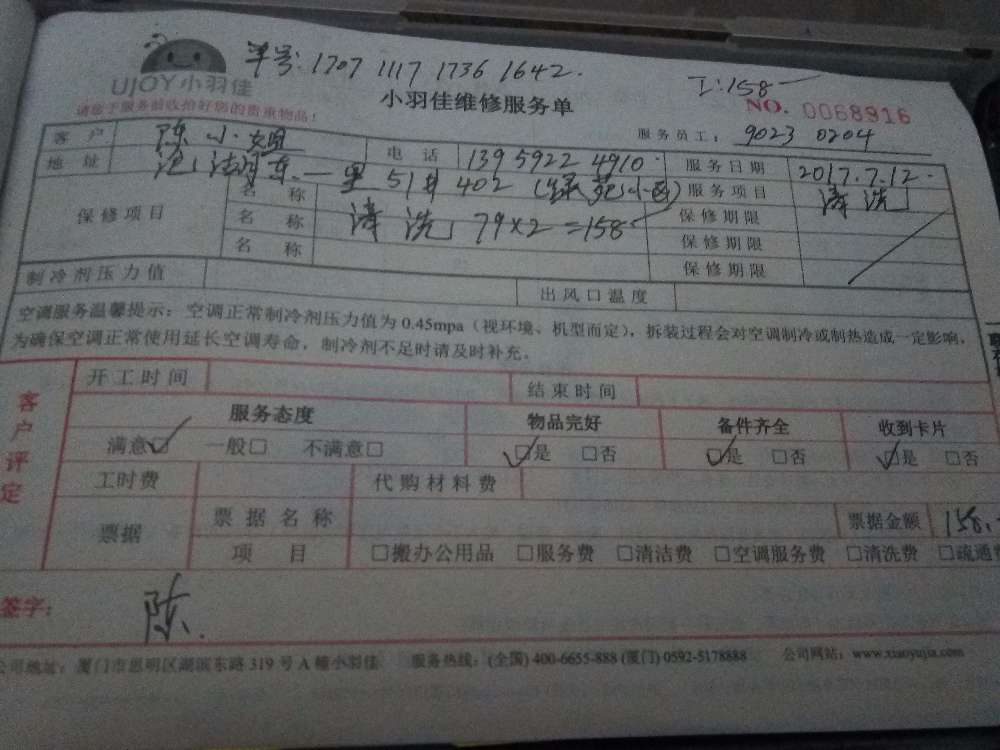 UJOY小羽佳
单号:1707 1117 1736 1642.
工:158
请您于服务前收拾好您的贵重物品!
小羽佳维修服务单
NO. 0068916
服务员工: 9023 0204
客户 陈小姐 电话 139 5922 4910. 服务日期 2017.7.12.
地址 东一里 51# 402 服务项目 清洗
保修项目 名称 保修期限
名称 清洗 79×2=158 保修期限
名称 保修期限
制冷剂压力值 出风口温度
空调服务温馨提示：空调正常制冷剂压力值为0.45mpa（视环境、机型而定），拆装过程会对空调制冷或制热造成一定影响，
为确保空调正常使用延长空调寿命，制冷剂不足时请及时补充。
客户评定
开工时间 结束时间
服务态度 物品完好 备件齐全 收到卡片
满意☑ 一般□ 不满意□ ☑是 □否 ☑是 □否 ☑是 □否
工时费 代购材料费
票据 票据名称 票据金额 158.
项目 □搬办公用品 □服务费 □清洁费 □空调服务费 □清洗费 □疏通
签字： 陈
公司地址：厦门市思明区湖滨东路319号A幢小羽佳 服务热线：(全国) 400-6655-888 (厦门) 0592-5178888 公司网站：www.xiaoyujia.com